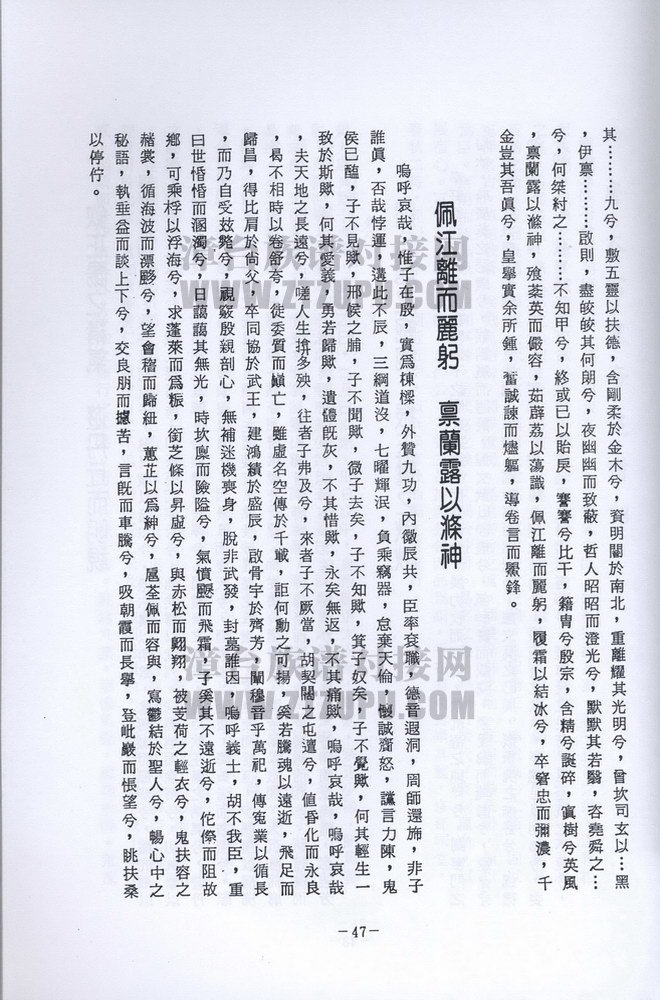 其………九兮，敷五靈以扶德，含剛柔於金木兮，賚明闇於南北，重離耀其光明兮，曾坎司玄以…黑
，伊禀………啟則，盡皎皎其何朗兮，夜幽幽而致蔽，哲人昭昭而澄光兮，默默其若翳，咨堯舜之…
兮，何桀紂之………不知甲兮，終或已以貽戾，謇謇兮比干，籍胄兮殷宗，含精兮誕碎，寘樹兮英風
，禀蘭露以滌神，飱菜英而儼容，茹薜荔以蕩識，佩江離而麗躬，履霜以結冰兮，卒窘忠而彌濃，千
金豈其吾眞兮，皇舉實余所鍾，奮誠諫而燼軀，導卷言而禦鋒。
佩江離而麗躬　禀蘭露以滌神
嗚呼哀哉，惟子在殷，實爲棟樑，外贊九功，內徽辰共，臣率衮職，德音遐洞，周師還旆，非子
誰眞，否哉悖運，遘此不辰，三綱道沒，七曜輝泯，負乘竊器，怠棄天倫，懟誠齋怒，讜言力陳，鬼
侯已醢，子不見歟，邢侯之脯，子不聞歟，微子去矣，子不知歟，箕子奴矣，子不覺歟，何其輕生一
致於斯歟，何其愛義，勇若歸歟，遺體旣灰，不其惜歟，永矣無返，不其痛歟，嗚呼哀哉，嗚呼哀哉
，夫天地之長遠兮，嗟人生擠多殃，往者子弗及兮，來者子不厥當，胡契闊之屯邅兮，値昏化而永良
，曷不相時以卷舒夸，徙委質而巔亡，雖虛名空傳於千載，詎何動之可揚，奚若騰魂以遠逝，飛足而
歸昌，得比肩於尙父，卒同協於武王，建鴻績於盛辰，啟骨宇於齊芳，闡穆音乎萬祀，傳寃業以循長
，而乃自受玆斃兮，視竅殷親剖心，無補迷機喪身，脫非武發，封墓誰因，嗚呼義士，胡不我臣，重
曰世惛惛而溷濁兮，日藹藹其無光，時坎廩而險隘兮，氣憤飋而飛霜，子奚其不遠逝兮，侘傺而阻故
鄕，可乘桴以浮海兮，求蓬萊而爲粻，銜芝條以昇虛兮，與赤松而翺翔，被芰荷之輕衣兮，曳扶容之
葩裳，循海波而漂眇兮，望會稽而歸紐，蕙芷以爲紳兮，扈荃佩而容與，寫鬱結於聖人兮，暢心中之
秘語，執垂益而談上下兮，交良朋而攄苦，言旣而車騰兮，吸朝霞而長舉，登屺巖而悵望兮，眺扶桑
以停佇。
-47-
漳台族谱对接网
WWW.ZTZUPU.COM
漳台族谱对接网
WWW.ZTZUPU.COM